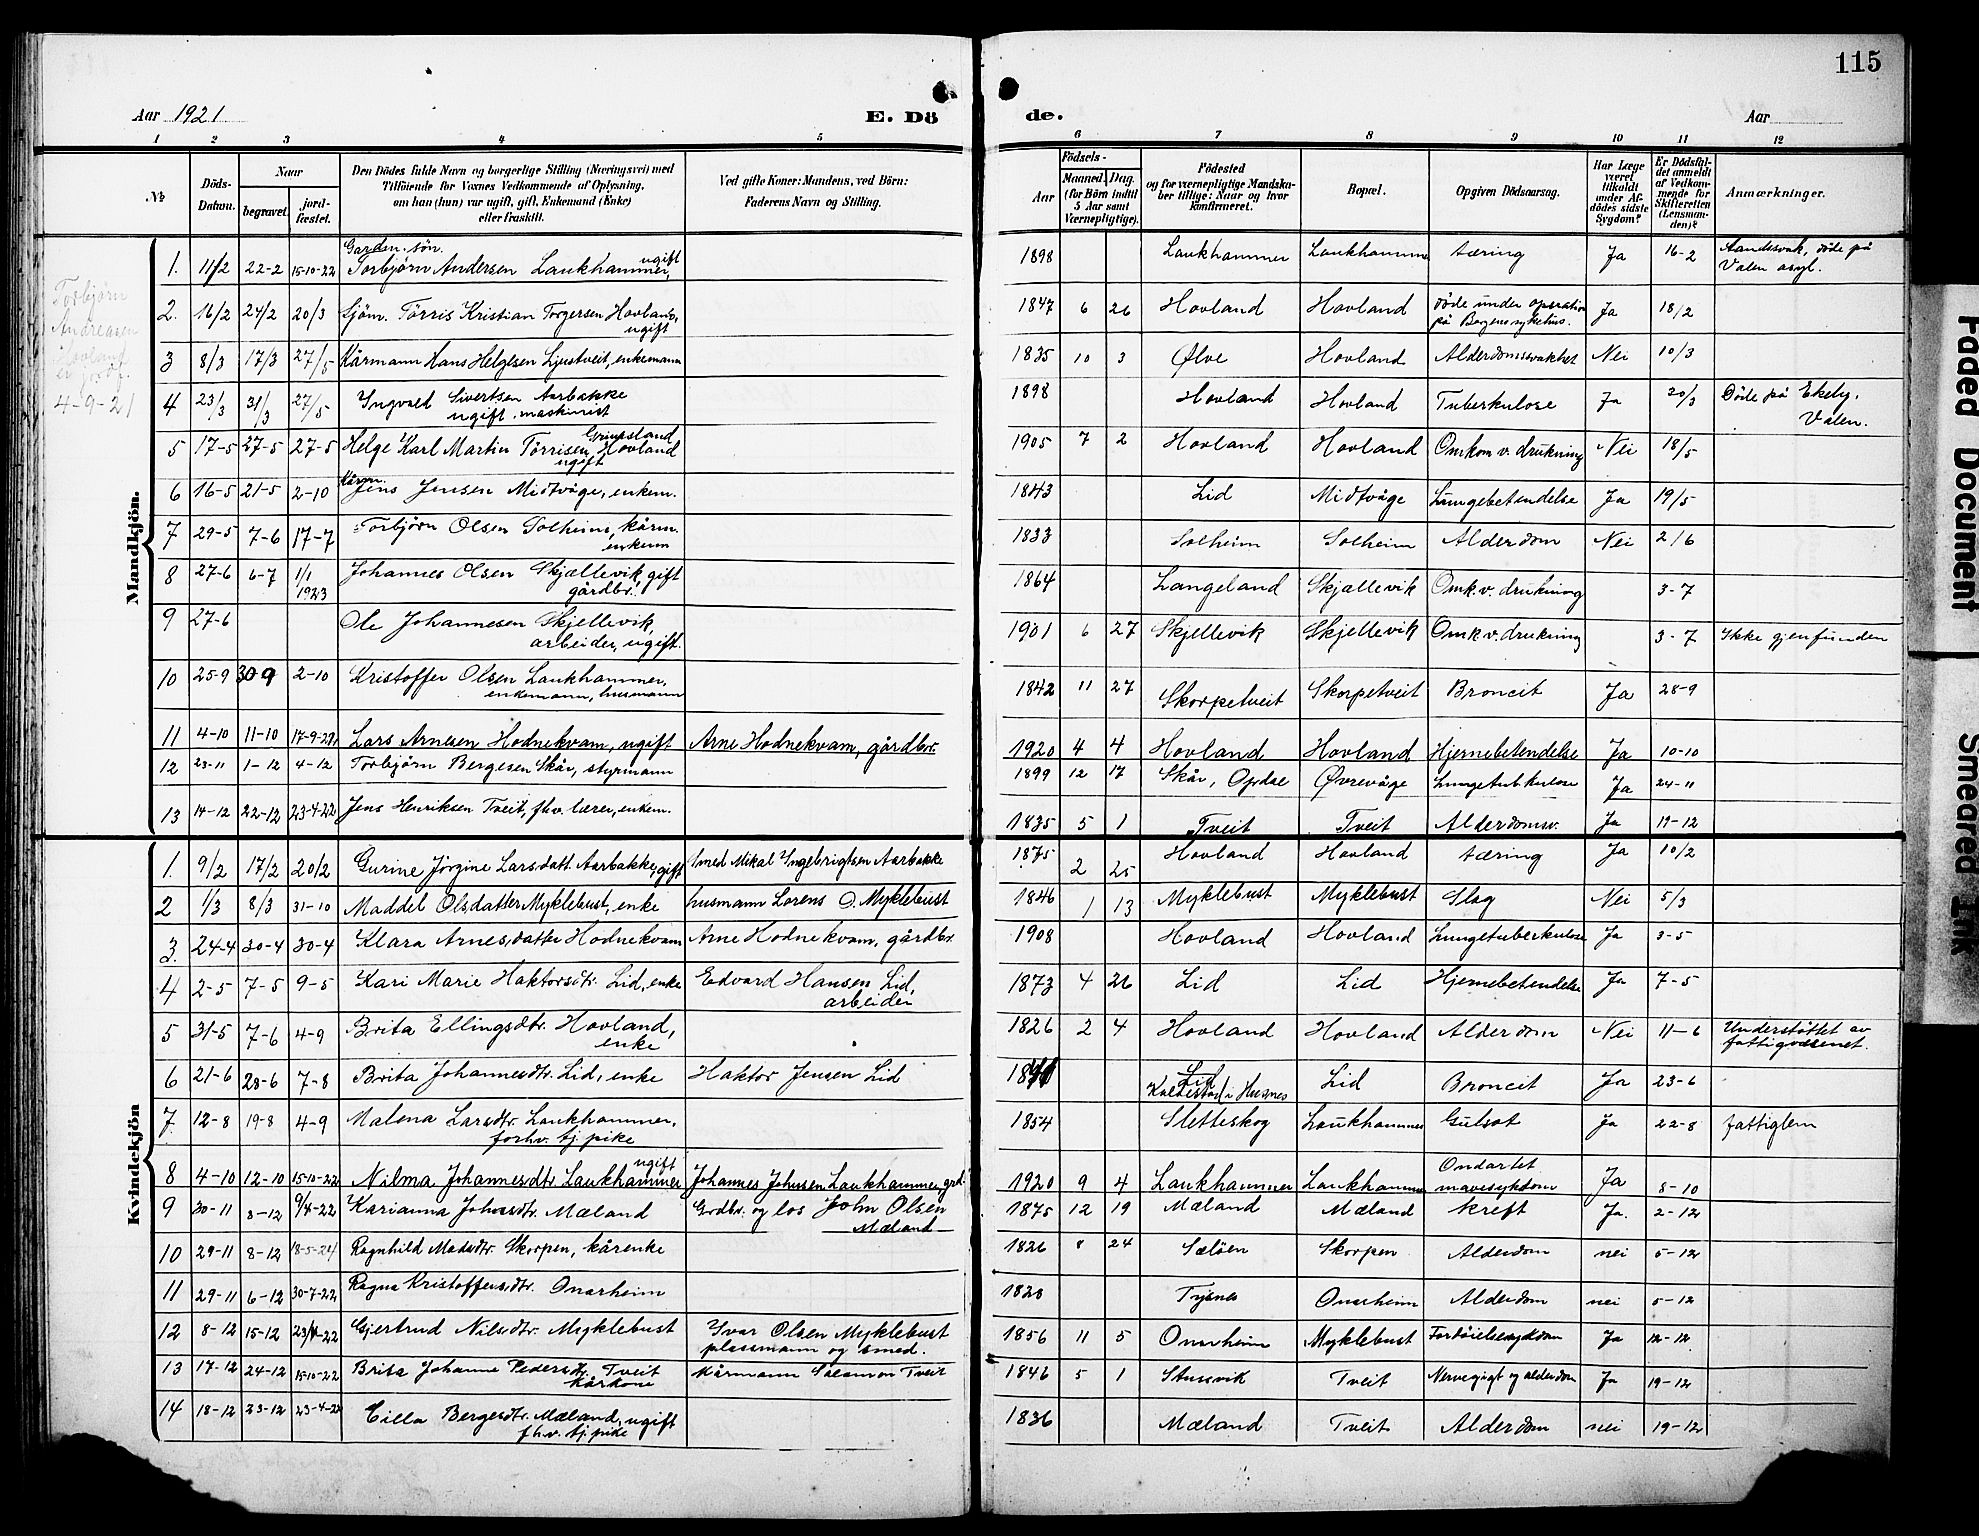 115
Aar 1921
E. Dö de.
Aar
1 2 3 4 5 6 7 8 9 10 11 12
№
Döds-Datum.
Naar
begravet.
jord-fæstet.
Den Dödes fulde Navn og borgerlige Stilling (Næringsvei) med
Tilföiende for Voxnes Vedkommende af Oplysning,
om han (hun) var ugift, gift, Enkemand (Enke)
eller fraskilt.
Ved gifte Koner: Mandens, ved Börn:
Faderens Navn og Stilling.
Födsels-
Aar
Maaned. Dag.
(for Börn indtil
5 Aar samt
Værnepligtige).
Födested
og for værnepligtige Mandska-
ber tillige: Naar og hvor
konfirmeret.
Bopæl.
Opgiven Dödsaarsag.
Har Læge
været
tilkaldt
under Af-
dödes sidste
Sygdom?
Er Dödsfal-
det anmeldt
af Vedkom-
mende for
Skifteretten
(Lensman-
den)?
Anmærkninger.
Mandkjön.
Torbjørn
Andreasen
Hovland
4-9-21
1. 11/2 22-2 15-10-22 Gardm. søn. Torbjørn Andersen Laukhammer, ugift 1898 Laukhammer Laukhammer tæring Ja 16-2 Aandssvak, døde på Valen asyl.
2. 16/2 24/2 20/3 Sjøm. Tørris Kristian Torgersen Hovland, ugift 1847 6 26 Hovland Hovland døde under operation på Bergens sykehus. Ja 18/2
3 8/3 17/3 27/5 Kårmann Hans Helgesen Ljustveit, enkemann 1835 10 3 Ølve Hovland Alderdomssvakhet Nei 10/3
4 23/3 31/3 27/5 Yngvald Sivertsen Aarbakke ugift. maskinist 1898 Hovland Hovland Tuberkulose Ja 20/3 Døde på Ekely, Valen.
5 17-5 27-5 27-5 Helge Karl Martin Tørrisen Grimsland Hovland ugift 1905 7 2 Hovland Hovland Omkom v. drukning Nei 18/5
6 16-5 21-5 2-10 Kårm. Jens Jensen Midtvåge, enkem. 1843 Lid Midtvåge Lungebetendelse Ja 19/5
7 29-5 7-6 17-7 Torbjørn Olsen Solheim, kårm. enkem 1833 Solheim Solheim Alderdom Nei 2/6
8 27-6 6-7 1/1 1923 Johannes Olsen Skjællevik, gift gårdbr. 1864 Langeland Skjællevik Omk. v. drukning 3-7
9 27-6 Ole Johannesen Skjellevik, arbeider, ugift. 1901 6 27 Skjellevik Skjellevik Omk v. drukning 3-7 Ikke gjenfunden
10 25-9 30-9 2-10 Kristoffer Olsen Laukhammer, enkemann, husmann 1842 11 27 Skorpetveit Skorpetveit Broncit Ja 28-9
11 4-10 11-10 17-9-22 Lars Arnesen Hodnekvam, ugift Arne Hodnekvam, gårdbr. 1920 4 4 Hovland Hovland Hjernebetendelse Ja 10-10
12 23-11 1-12 4-12 Torbjørn Bergesen Skår, styrmann 1899 12 17 Skår, Opdal Øvrevåge Lungetuberkulose Ja 24-11
13 14-12 22-12 23-4-22 Jens Henriksen Tveit, fhv. lærer, enkem. 1835 5 1 Tveit Tveit Alderdomsv. Ja 19-12
Kvindekjön
1. 9/2 17/2 20/2 Gurine Jørgine Larsdatt. Aarbakke, gift Smed Mikal Yngebrigtsen Aarbakke 1875 2 25 Hovland Hovland tæring Ja 10/2
2 1/3 8/3 31-10 Maddel Olsdatter Myklebust, enke husmann Lorens O. Myklebust 1846 1 13 Myklebust Myklebust Slag Nei 5/3
3. 24-4 30-4 30-4 Klara Arnesdatter Hodnekvam Arne Hodnekvam, gårdbr. 1908 Hovland Hovland Lungetuberkulose Ja 3-5
4 2-5 7-5 9-5 Kari Marie Haktorsdtr. Lid, enke Edvard Hansen Lid, arbeider 1873 4 26 Lid Lid Hjernebetendelse Ja 7-5
5 31-5 7-6 4-9 Brita Ellingsdtr. Hovland, enke 1826 2 4 Hovland Hovland Alderdom Nei 11-6 Understøttet av fattigvæsenet.
6 21-6 28-6 7-8 Brita Johannesdtr. Lid, enke Haktor Jensen Lid Lid Kaldestad i Husnes Lid Broncit Ja 23-6
7. 12-8 19-8 4-9 Malena Larsdtr. Laukhammer, forhv. tj. pike 1854 Sletteskog Laukhammer Gulsot Ja 22-8 fattiglem
8 4-10 12-10 15-10-22 Nilma Johannesdtr. Laukhammer ugift Johannes Johnsen Laukhammer, grd. 1920 9 4 Laukhammer Laukhammer Ondartet mavesykdom Ja 8-10
9 30-11 8-12 9/4-22 Karianna Johnsdtr. Mæland Grdbr. og los John Olsen Mæland 1875 12 19 Mæland Mæland kreft Ja. 2-12
10 29-11 8-12 18-5-24 Ragnhild Madsdtr. Skorpen, kårenke 1826 8 24 Sæløen Skorpen Alderdom nei 5-12
11 29-11 6-12 30-7-22 Ragna Kristoffersdtr. Onarheim 1828 Tysnes Onarheim Alderdom nei 5-12
12 8-12 15-12 23/4-22 Gjertrud Nilsdtr. Myklebust Ivar Olsen Myklebust plassmann og smed. 1856 11 5 Onarheim Myklebust Fordøielsesykdom Ja 12-12
13 17-12 24-12 15-10-22 Brita Johanne Pedersdtr. Tveit kårkone Kårmann Salamon Tveit 1846 5 1 Stussvik Tveit Nervegigt og alderdom Ja 19-12
14 18-12 23-12 23-4-22 Cilla Bergesdtr. Mæland, ugift fhv. tj. pike 1836 Mæland Tveit Alderdom nei 19-12
Faded Document
Smeared Ink